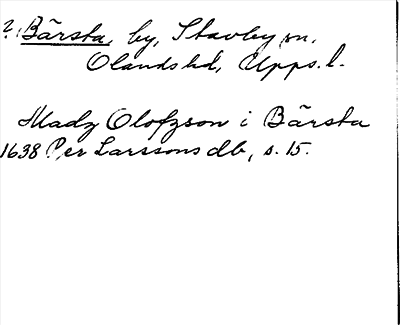 2. Bärsta, by, Stavby sn,
Olands hd, Upps. l.
Madz Olofzson i Bärsta
1638 Per Larssons db, s. 15.